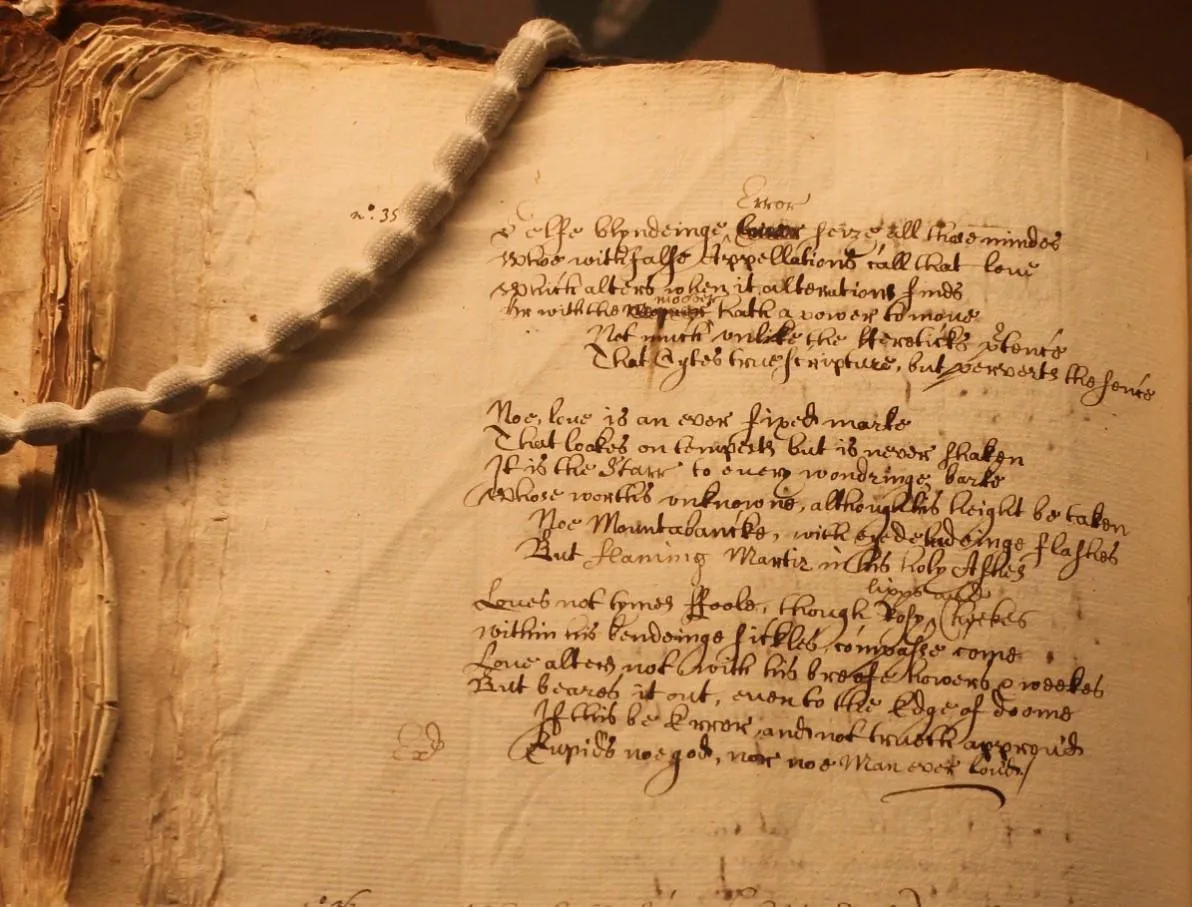 Error
n°. 35
Selfe blyndeinge seize all those mindes
Whoe with false Appellations call that love
Which alters when it alterations finds
moover
Or with the hath a power to move
Not much unlike the Hereticks ptence
That Cytes true scripture, but perverts the sence
Noe, love is an ever fixed marke
That lookes on tempests but is never shaken
It is the Starr to every wandringe barke
Whose worth's unknowne, although his height be taken
Noe Mountabancke, with eyedeludeinge flashes
But flaming Martir in his holy Ashes
lipps and
Loves not tymes ffoole, though Rosy Cheekes
within his bendeinge sickles compasse come
Love alters not with his breefe howers & weekes
But beares it out, even to the Edge of doome
If this be Error and not trueth approv'd
Cupids noe god, nor noe Man ever lov'd/